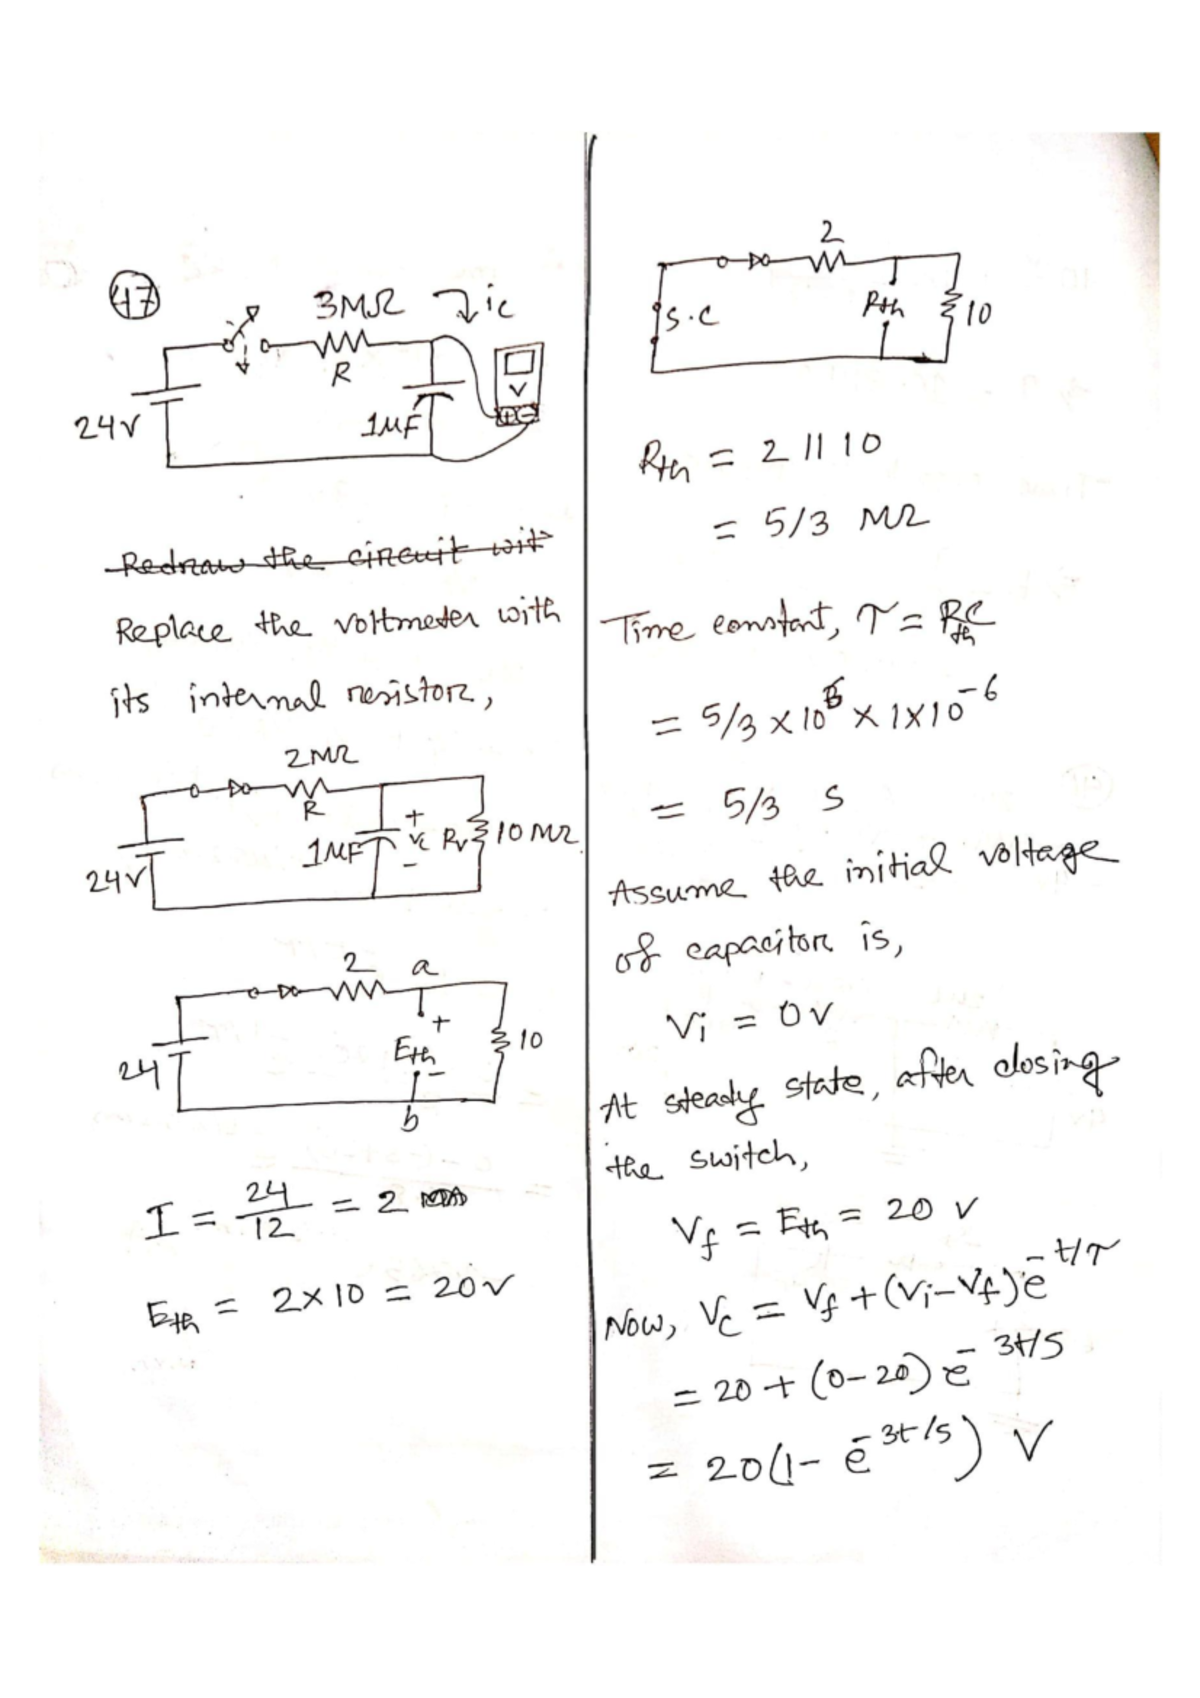 47
3MΩ ic
R
V
24V
1μF
+ −
Redraw the circuit wit
Replace the voltmeter with
its internal resistor,
2MΩ
R
1μF + Vc − Rv 10 MΩ
24V
2 a
+
Eth 10
24 −
b
I = 24/12 = 2
Eth = 2×10 = 20V
2
S.C Rth 10
Rth = 2 || 10
= 5/3 MΩ
Time constant, τ = RthC
= 5/3 × 10^6 × 1×10^-6
= 5/3 S
Assume the initial voltage
of capacitor is,
Vi = 0V
At steady state, after closing
the switch,
Vf = Eth = 20 V
Now, Vc = Vf + (Vi−Vf)e^-t/τ
= 20 + (0−20) e^-3t/5
= 20(1− e^-3t/5) V